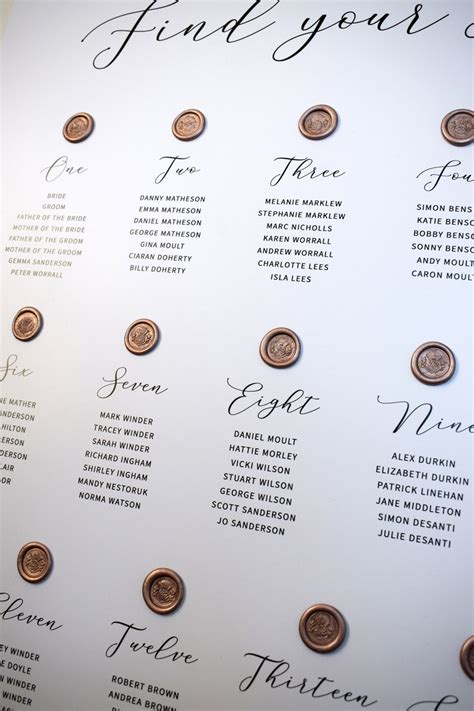 Find your
One
BRIDE
GROOM
FATHER OF THE BRIDE
MOTHER OF THE BRIDE
FATHER OF THE GROOM
MOTHER OF THE GROOM
GEMMA SANDERSON
PETER WORRALL
Two
DANNY MATHESON
EMMA MATHESON
DANIEL MATHESON
GEORGE MATHESON
GINA MOULT
CIARAN DOHERTY
BILLY DOHERTY
Three
MELANIE MARKLEW
STEPHANIE MARKLEW
MARC NICHOLLS
KAREN WORRALL
ANDREW WORRALL
CHARLOTTE LEES
ISLA LEES
Fou
SIMON BENS
KATIE BENSO
BOBBY BENSO
SONNY BENSO
ANDY MOULT
CARON MOULT
Six
NE MATHER
ANDERSON
HILTON
ANDERSON
LAIR
SON
Seven
MARK WINDER
TRACEY WINDER
SARAH WINDER
RICHARD INGHAM
SHIRLEY INGHAM
MANDY NESTORUK
NORMA WATSON
Eight
DANIEL MOULT
HATTIE MORLEY
VICKI WILSON
STUART WILSON
GEORGE WILSON
SCOTT SANDERSON
JO SANDERSON
Nine
ALEX DURKIN
ELIZABETH DURKIN
PATRICK LINEHAN
JANE MIDDLETON
SIMON DESANTI
JULIE DESANTI
Eleven
LEY WINDER
E DOYLE
WINDER
WINDER
Twelve
ROBERT BROWN
ANDREA BROWN
Thirteen